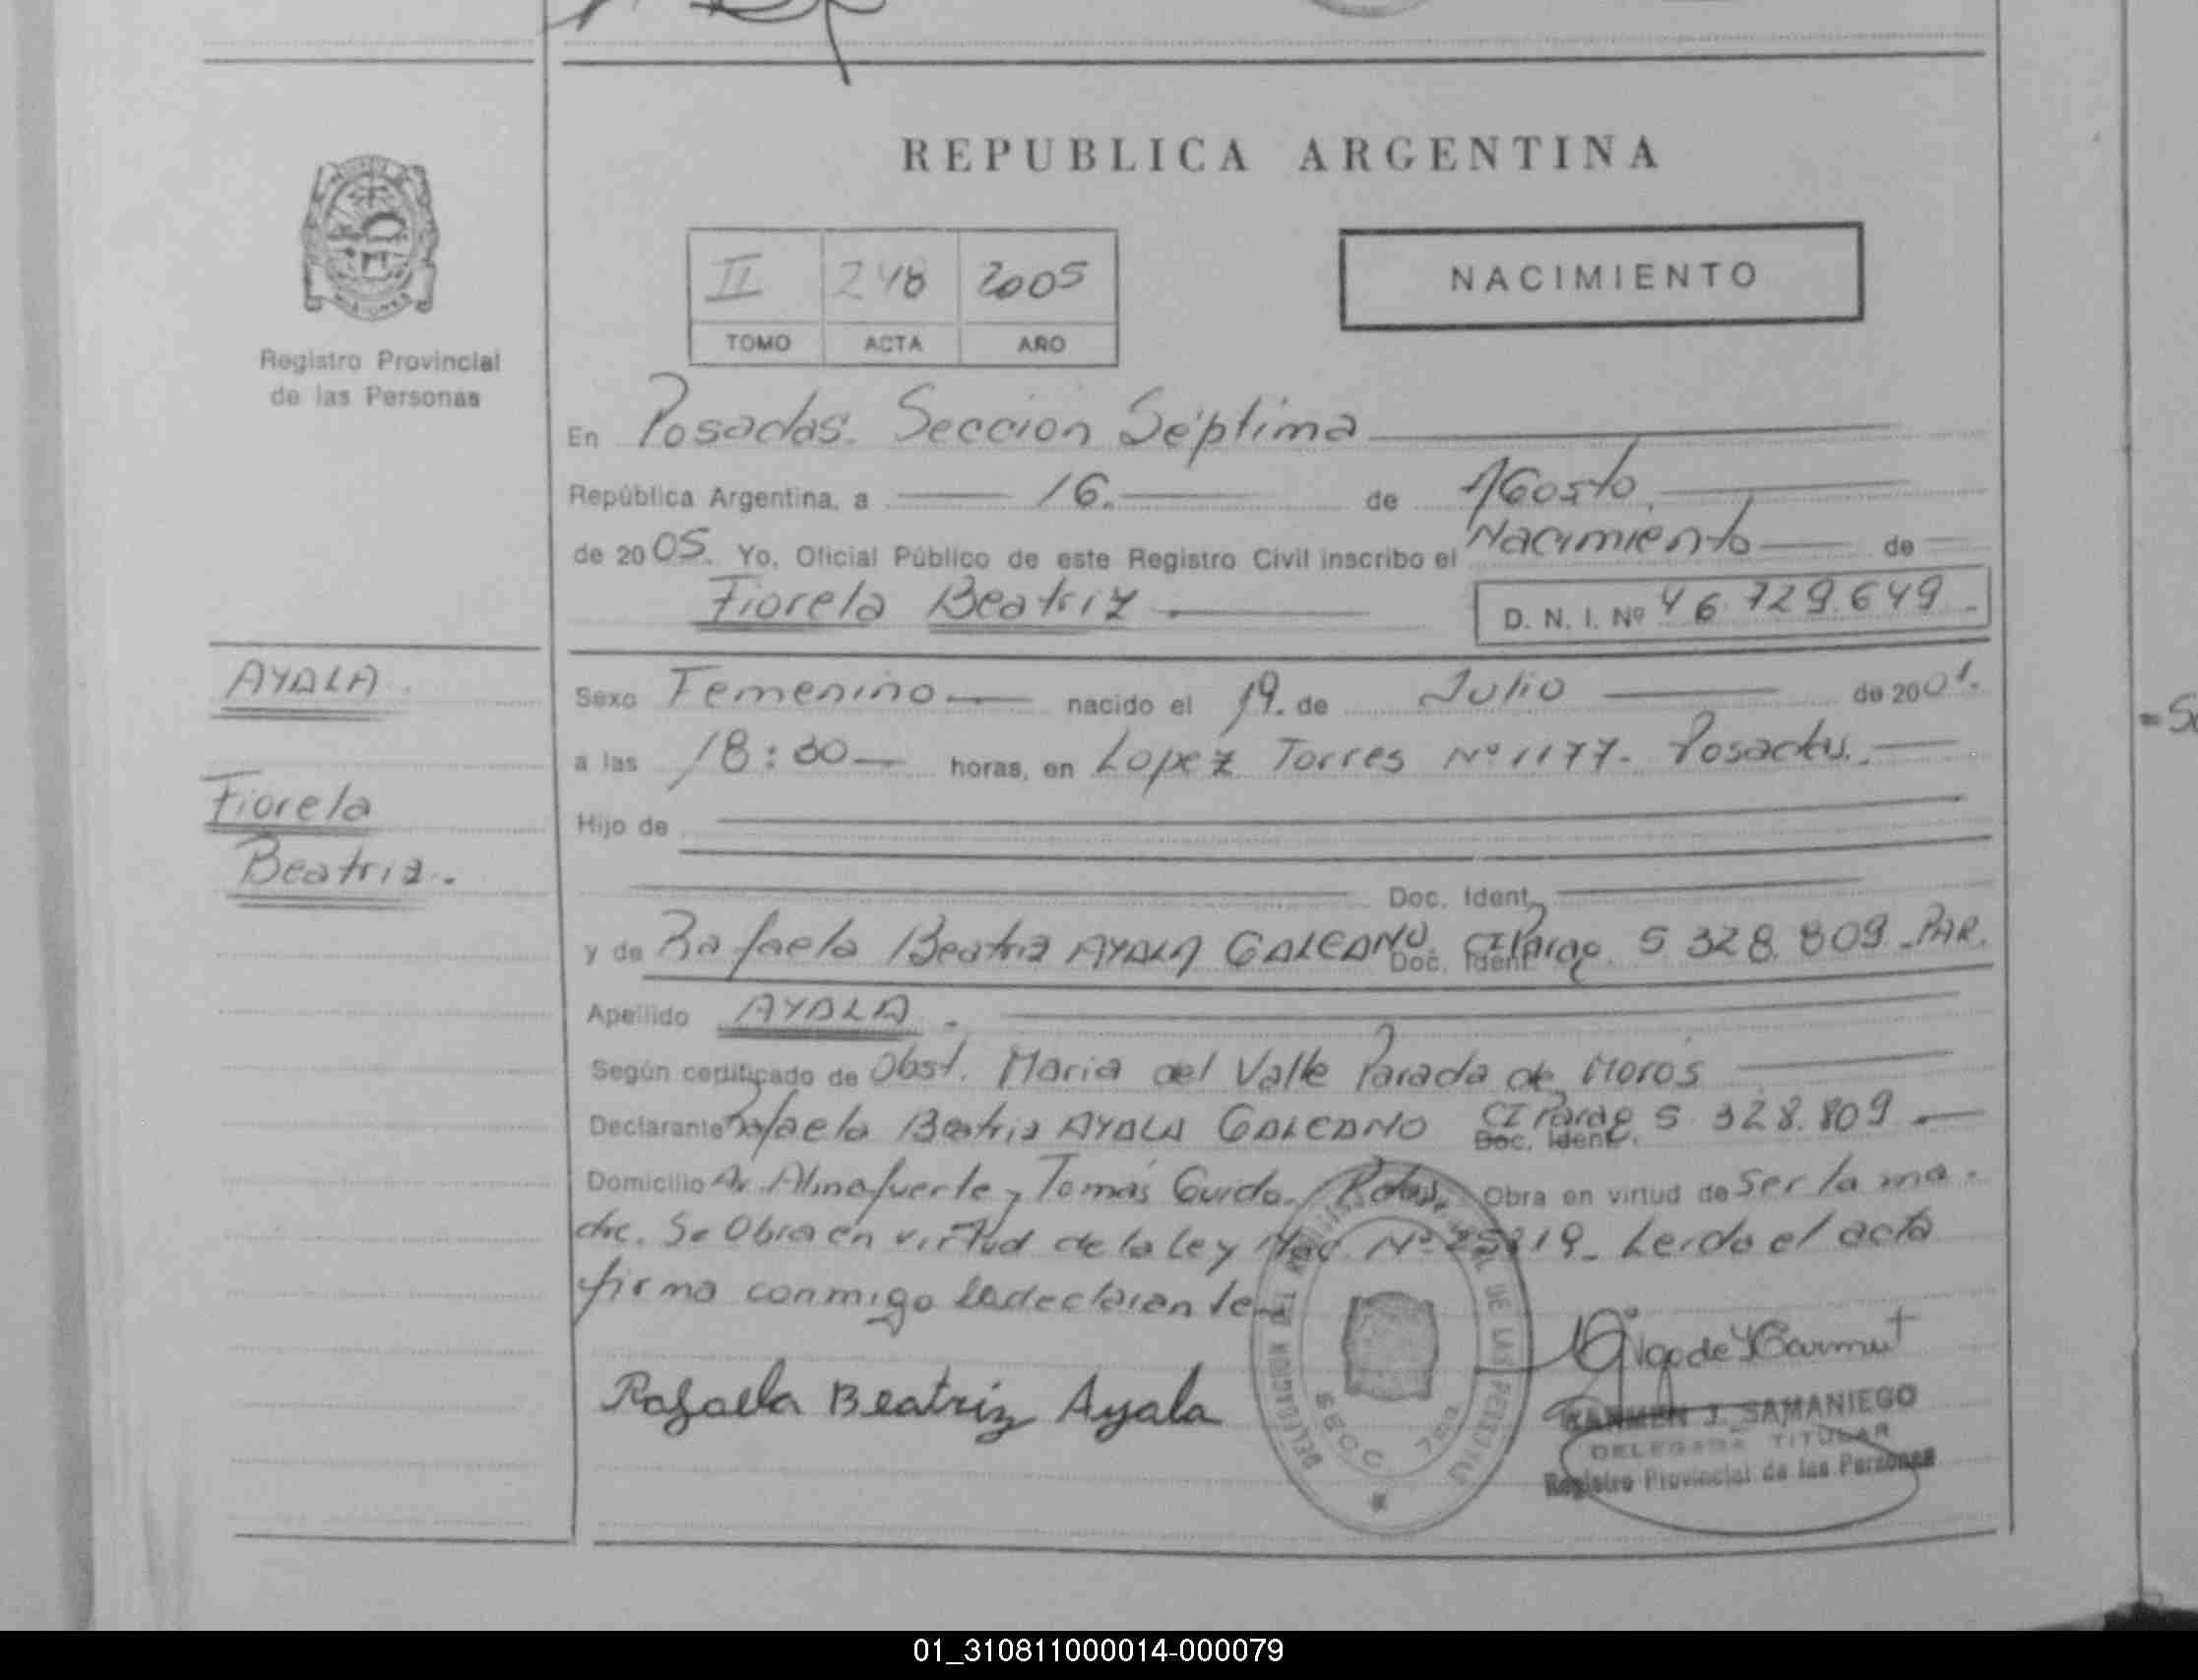 REPUBLICA ARGENTINA
II 248 2005
TOMO ACTA AÑO
NACIMIENTO
Registro Provincial
de las Personas
En Posadas. Seccion Séptima
República Argentina, a 16. de AGosto
de 2005. Yo, Oficial Público de este Registro Civil inscribo el Nacimiento de
Fiorela Beatriz. D. N. I. Nº 46 729.649.
AYALA.
Fiorela
Beatriz.
Sexo Femenino nacido el 19. de Julio de 2001.
a las 18:30 horas, en Lopez Torres Nº 1177. Posadas.
Hijo de
Doc. Ident.
y de Rafaela Beatriz AYALA GALEANO Doc. Ident. CI Parag. 5 328.809. PAR.
Apellido AYALA.
Según certificado de Obst. Maria del Valle Parada de Moros
Declarante Rafaela Beatriz AYALA GALEANO Doc. Ident. CI Parag 5 328.809
Domicilio Av. Almafuerte y Tomás Guido. Obra en virtud de Ser la ma-
dre. Se Obra en virtud de la Ley Nac Nº Leida el acta
firma conmigo la declarante
Rafaela Beatriz Ayala
DELEGACION DEL REGISTRO PROVINCIAL DE LAS PERSONAS
SECC. 7ma
KARMEN J. SAMANIEGO
DELEGADA TITULAR
Registro Provincial de las Personas
01_310811000014-000079